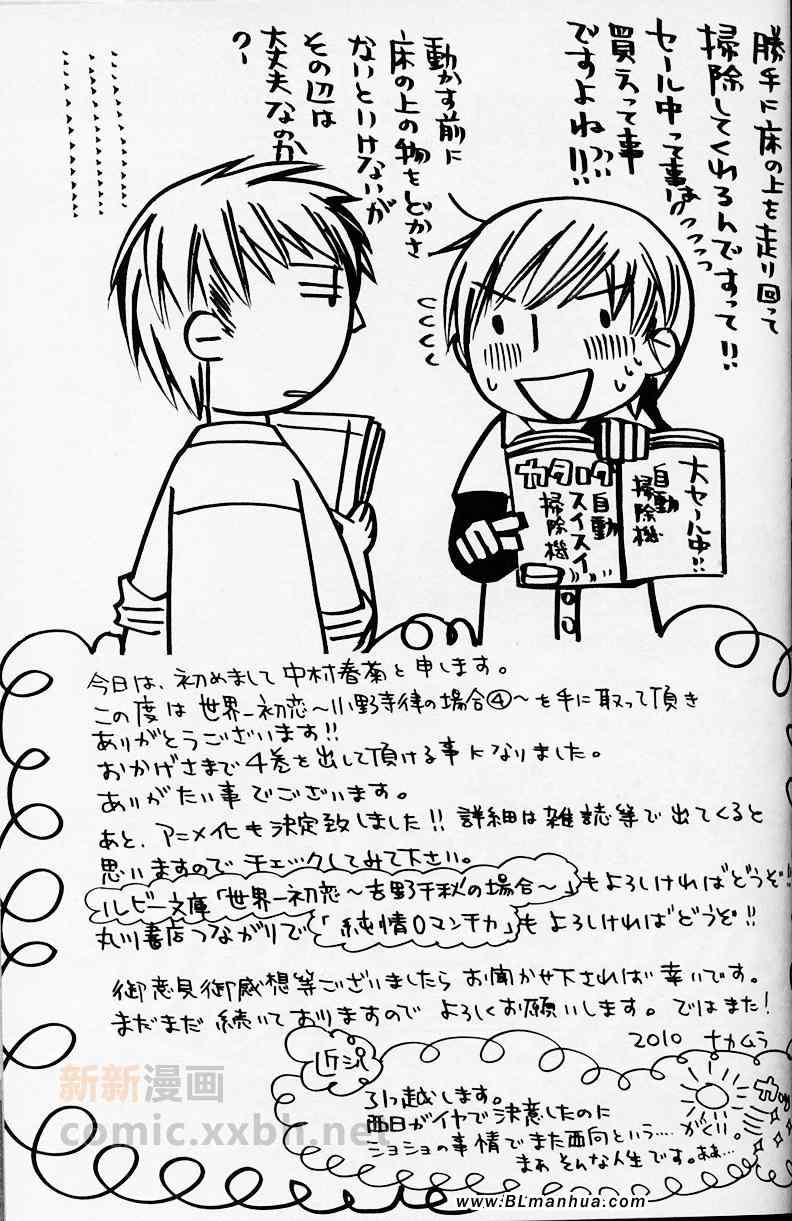 勝手に床の上を走り回って
掃除してくれるんですって!!
セール中って事はっっっ
買えって事
ですよねっっ!!
動かす前に
床の上の物をどかさ
ないといけないが
その辺は
大丈夫なのか
?
カタログ
自動
スイスイ
掃除機
大セール中!!
自動
掃除機
今日は、初めまして中村春菊と申します。
この度は 世界一初恋〜小野寺律の場合④〜を手に取って頂き
ありがとうございます!!
おかげさまで4巻を出して頂ける事になりました。
ありがたい事でございます。
あと、アニメ化も決定致しました!! 詳細は雑誌等で出てくると
思いますのでチェックしてみて下さい。
ルビー文庫「世界一初恋〜吉野千秋の場合〜」もよろしければどうぞ!!
丸川書店つながりで「純情ロマンチカ」もよろしければどうぞ!!
御意見御感想等ございましたらお聞かせ下されば幸いです。
まだまだ続いておりますのでよろしくお願いします。ではまた!
2010 ナカムラ
近況
引っ越します。
西日がイヤで決意したのに
ショショの事情でまた西向という…. がくり。
まぁ そんな人生です。ああ…
新新漫画
comic.xxbh.net
www.BLmanhua.com